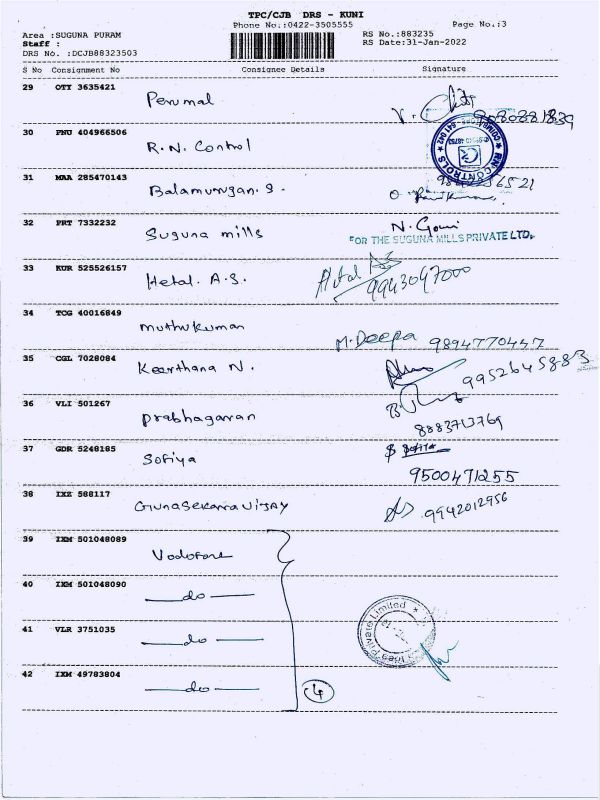 TPC/CJB DRS - KUNI
Phone No.:0422-3505555
Page No.:3
Area :SUGUNA PURAM
RS No.:883235
Staff :
RS Date:31-Jan-2022
DRS No. :DCJB88323503
S No Consignment No Consignee Details Signature
29 OTY 3635421 Perumal
30 PNU 404966506 R.N. Control
RN CONTROLS
31 MAA 285470143 Balamurugan. S.
32 PRT 7332232 Suguna mills N. Gowri
FOR THE SUGUNA MILLS PRIVATE LTD.
33 KUR 525526157 Hetal. A.S. Hetal AS
9943047000
34 TCG 40016849 Muthukumar M. Deepa 9894770447
35 CGL 7028084 Keerthana N. 9952645883
36 VLI 501267 Prabhagaran
8883713769
37 GDR 5248185 Sofiya Sofiya
9500471255
38 IXZ 588117 Gunasekaran Vijay 9942012956
39 IXM 501048089 Vodofone
40 IXM 501048090 —do—
41 VLR 3751035 —do—
Idea Private Limited
42 IXM 49783804 —do— 4